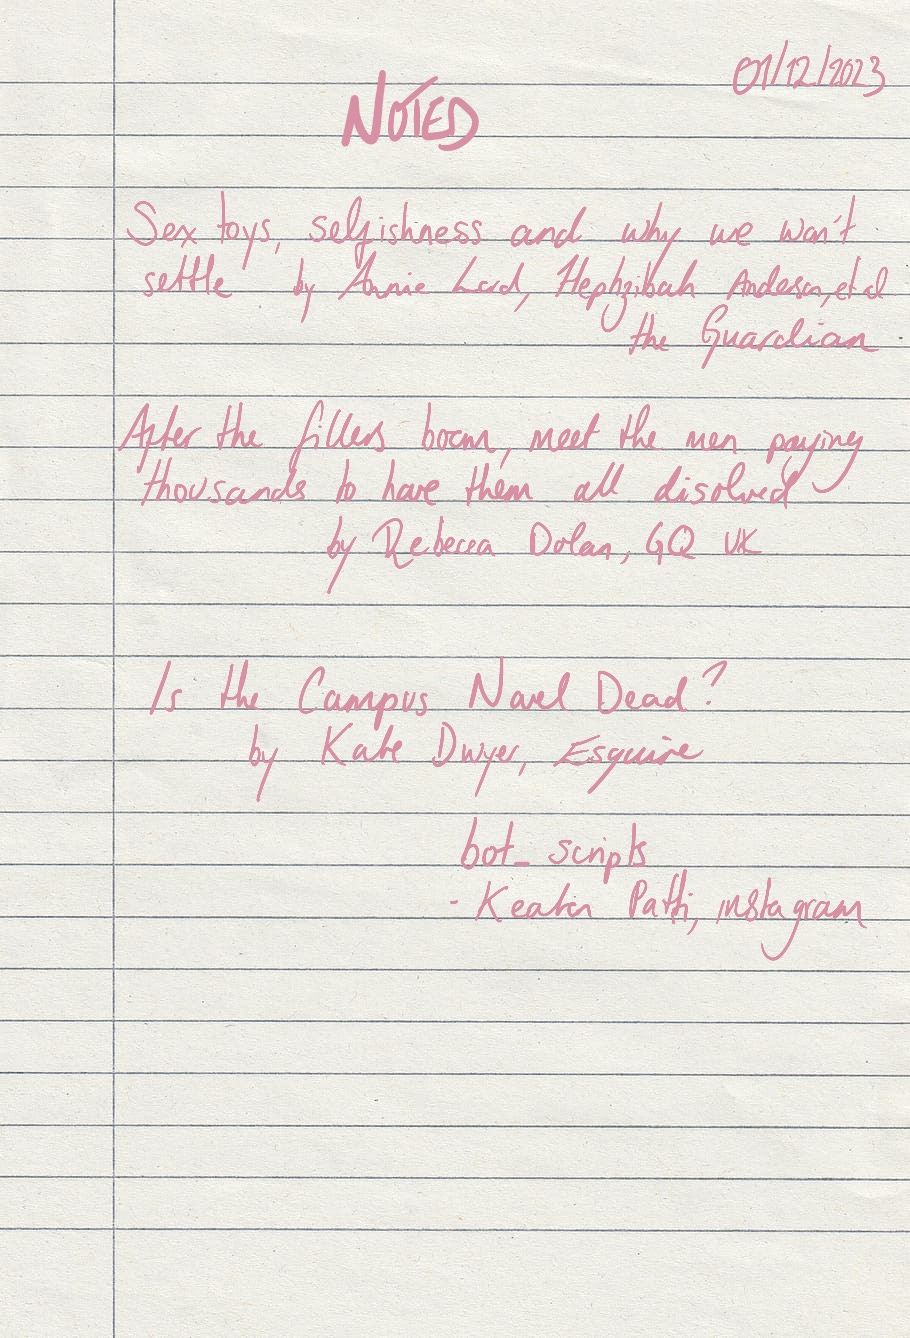 01/12/2023
NOTED
Sex toys, selfishness and why we won't
settle by Annie Lord, Hephzibah Anderson, et al
the Guardian
After the fillers boom, meet the men paying
thousands to have them all disolved
by Rebecca Dolan, GQ UK
Is the Campus Novel Dead?
by Kate Dwyer, Esquire
bot_scripts
- Keaton Patti, instagram